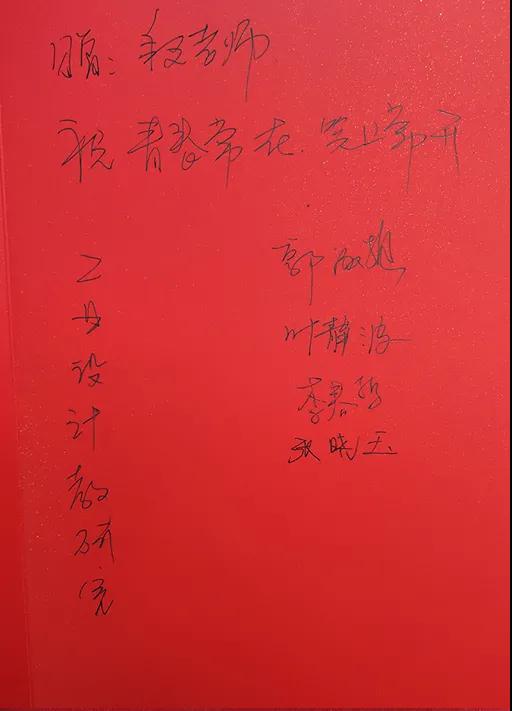 赠：段老师
祝 青春常在.笑口常开
郭
叶静波
李春
张晓玉
工业设计教研室